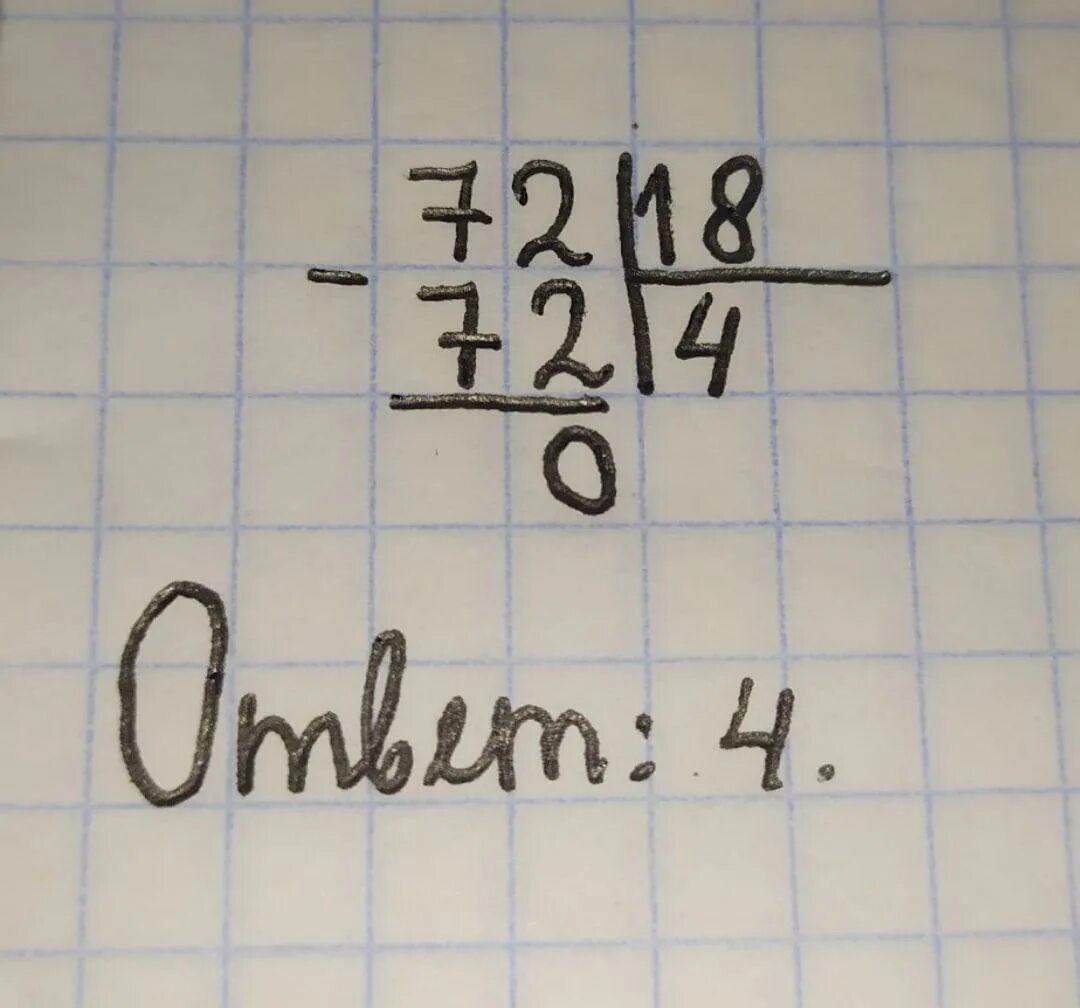 72 18
- 72 4
0
Ответ: 4.